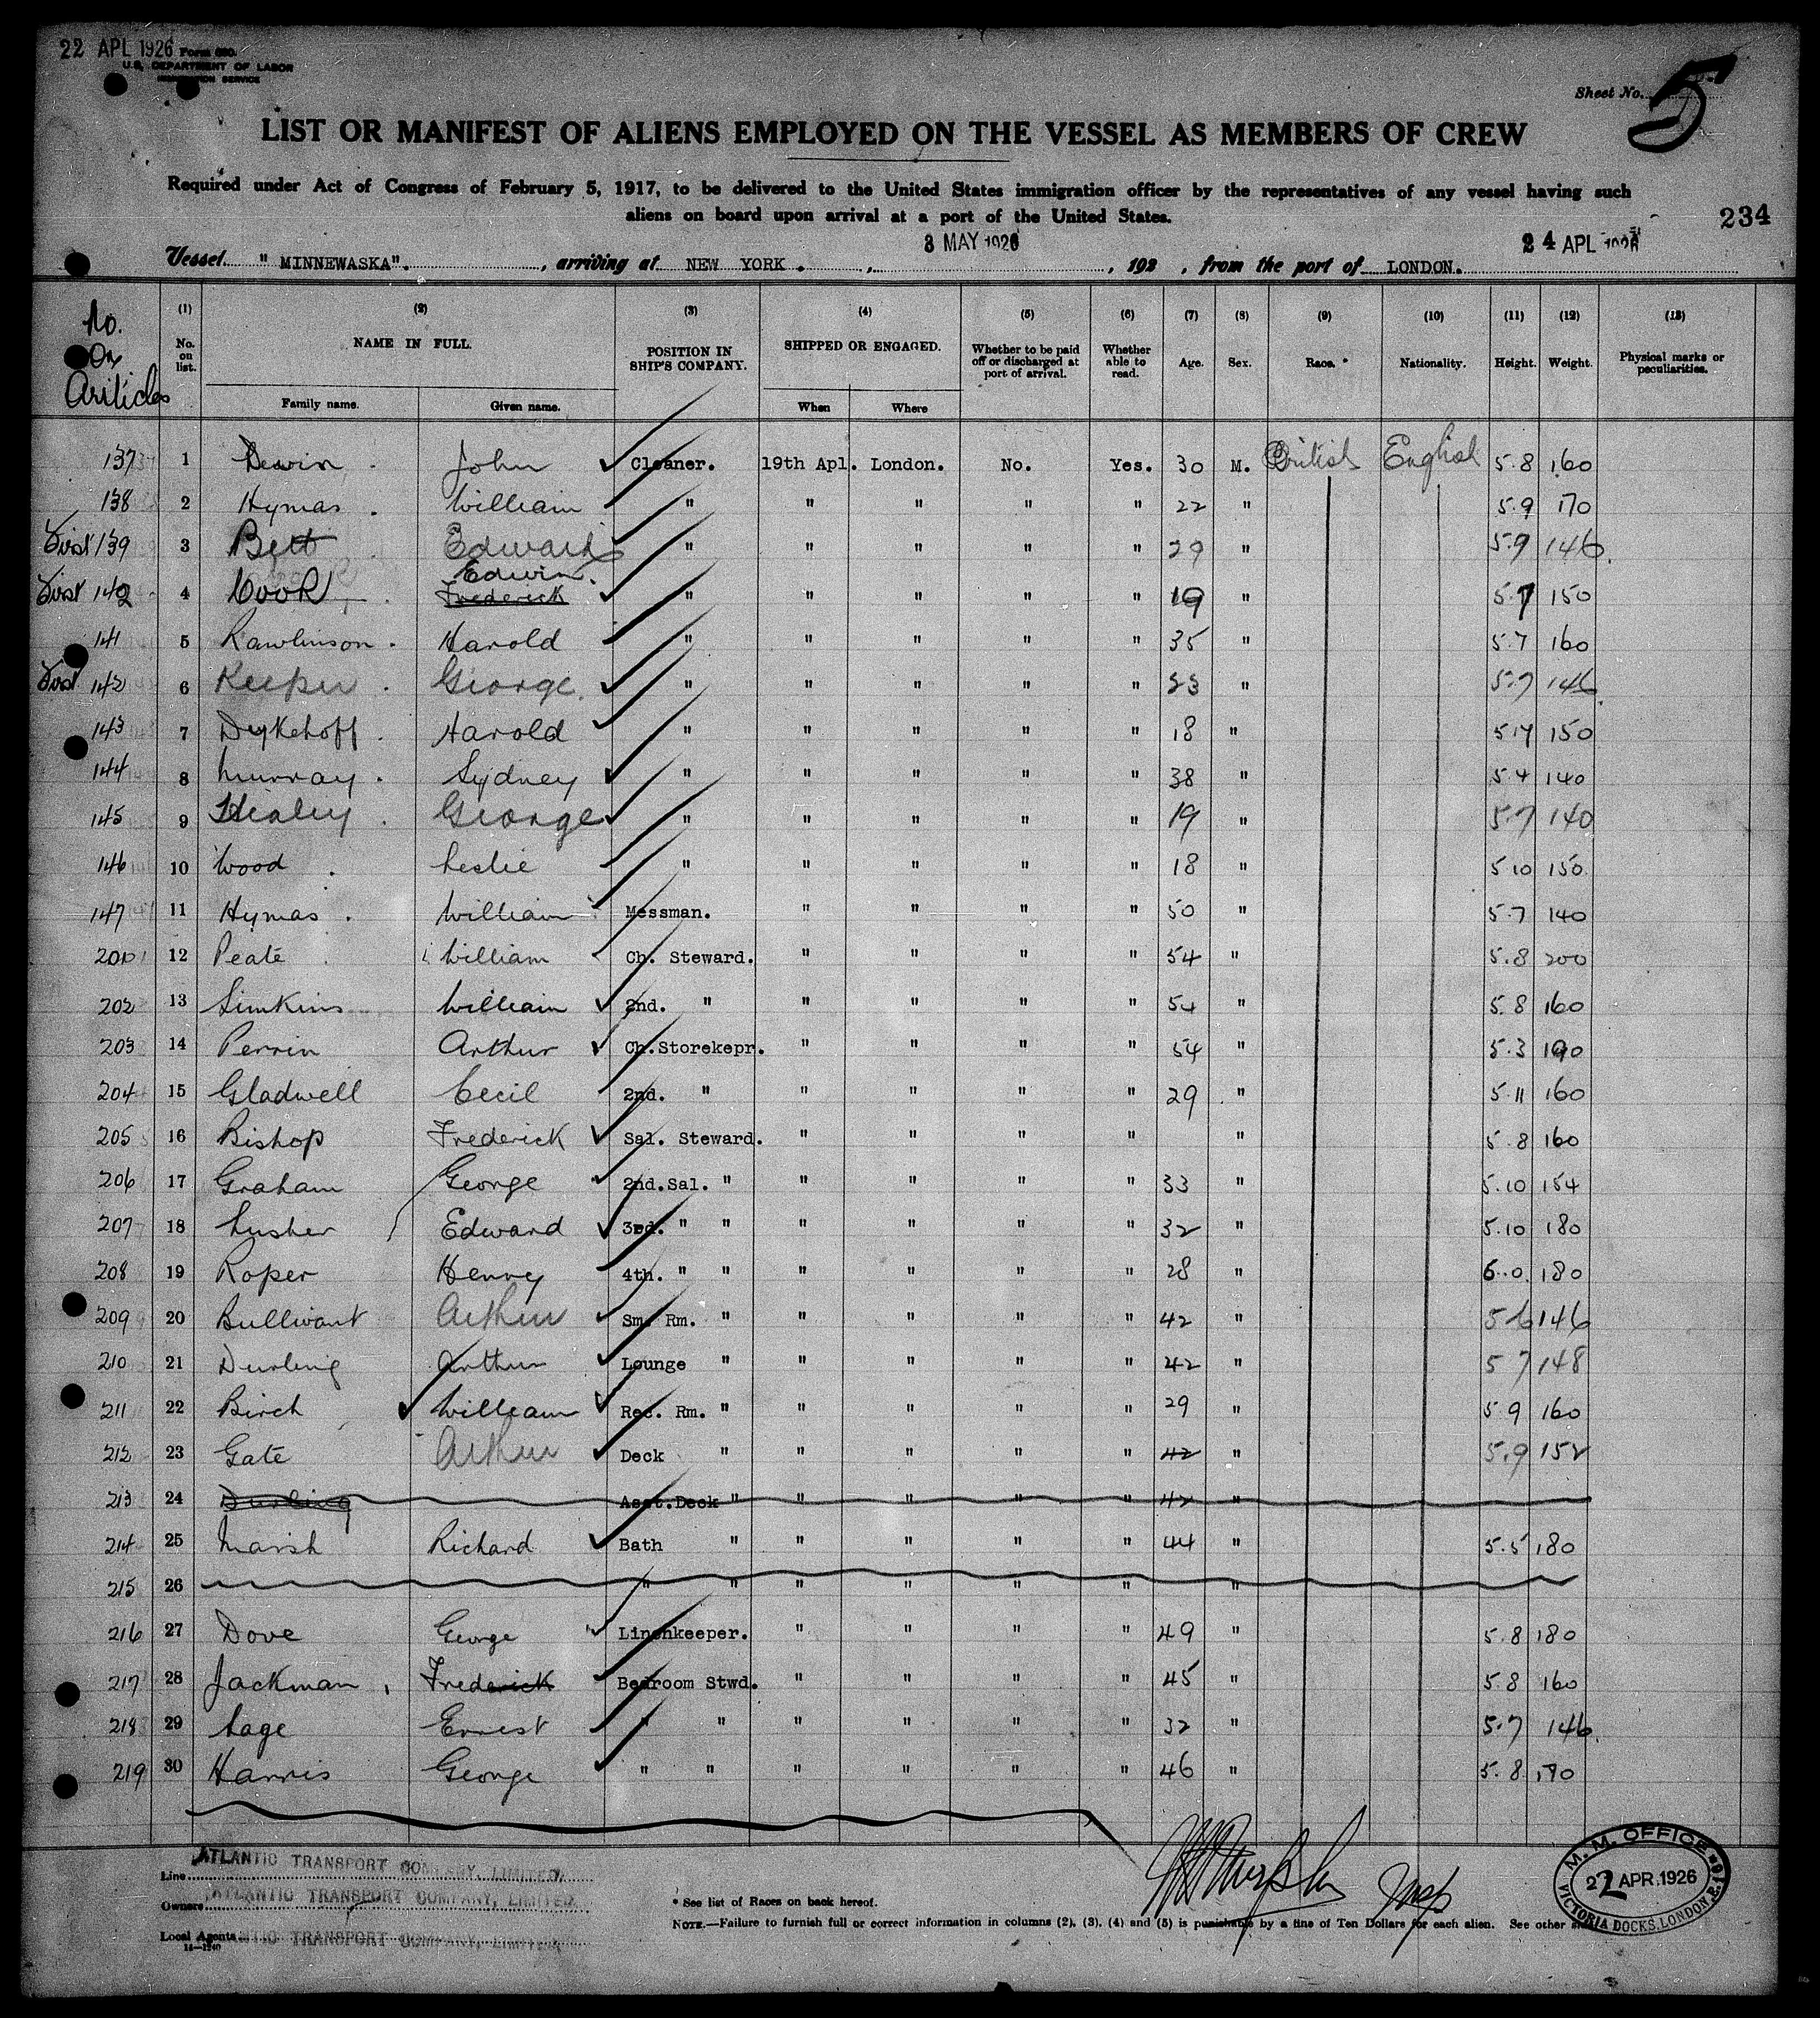 22 APL 1926 Form 680.
U.S. DEPARTMENT OF LABOR
IMMIGRATION SERVICE
Sheet No. 5
LIST OR MANIFEST OF ALIENS EMPLOYED ON THE VESSEL AS MEMBERS OF CREW
Required under Act of Congress of February 5, 1917, to be delivered to the United States immigration officer by the representatives of any vessel having such
aliens on board upon arrival at a port of the United States.
234
3 MAY 1926 24 APL 1926
Vessel " MINNEWASKA". , arriving at NEW YORK . , , 192 , from the port of LONDON.
No. On Articles (1) No. on list. (2) NAME IN FULL. Family name. Given name. (3) POSITION IN SHIP'S COMPANY. (4) SHIPPED OR ENGAGED. When Where (5) Whether to be paid off or discharged at port of arrival. (6) Whether able to read. (7) Age. (8) Sex. (9) Race.* (10) Nationality. (11) Height. (12) Weight. (13) Physical marks or peculiarities.
137 1 John Cleaner. 19th Apl. London. No. Yes. 30 M. British English 5.8 160
138 2 Hymas William " " " " " 22 " 5.9 170
First 139 3 Bett Edward " " " " " 29 " 5.9 146
Edwin
First 140 4 Cook Frederick " " " " " 19 " 5.7 150
141 5 Rawlinson Harold " " " " " 35 " 5.7 160
First 142 6 Keeper George " " " " " 23 " 5.7 146
143 7 Dykehoff Harold " " " " " 18 " 5.7 150
144 8 Murray Sydney " " " " " 38 " 5.4 140
145 9 Healey George " " " " " 19 " 5.7 140
146 10 Wood Leslie " " " " " 18 " 5.10 150
147 11 Hymas William Messman. " " " " 50 " 5.7 140
201 12 Peate William Ch. Steward. " " " " 54 " 5.8 200
202 13 Simkins William 2nd. " " " " " 54 " 5.8 160
203 14 Perrin Arthur Ch.Storekepr. " " " " 54 " 5.3 190
204 15 Gladwell Cecil 2nd. " " " " " 29 " 5.11 160
205 16 Bishop Frederick Sal. Steward. " " " " " 5.8 160
206 17 Graham George 2nd.Sal. " " " " " 33 " 5.10 154
207 18 Lusher Edward 3rd. " " " " " " 32 " 5.10 180
208 19 Roper Henry 4th. " " " " " " 28 " 6.0 180
209 20 Bullivant Arthur Sm. Rm. " " " " " 42 " 5.6 146
210 21 Durling Arthur Lounge " " " " " 42 " 5.7 148
211 22 Birch William Rec. Rm. " " " " " 29 " 5.9 160
212 23 Gate Arthur Deck " " " " " 42 " 5.9 152
213 24 Durling Asst.Deck " " " " " 42 "
214 25 Marsh Richard Bath " " " " " 44 " 5.5 180
215 26 " " " " " " "
216 27 Dove George Linenkeeper. " " " " 49 " 5.8 180
217 28 Jackman Frederick Bedroom Stwd. " " " " 45 " 5.8 160
218 29 Sage Ernest " " " " " " 32 " 5.7 146
219 30 Harris George " " " " " " 46 " 5.8 170
Line ATLANTIC TRANSPORT COMPANY, LIMITED.
Owners ATLANTIC TRANSPORT COMPANY, LIMITED.
Local Agents ATLANTIC TRANSPORT COMPANY, LIMITED.
14—1240
* See list of Races on back hereof.
NOTE.—Failure to furnish full or correct information in columns (2), (3), (4) and (5) is punishable by a fine of Ten Dollars for each alien. See other
M. M. OFFICE
22 APR.1926
VICTORIA DOCKS, LONDON E.16